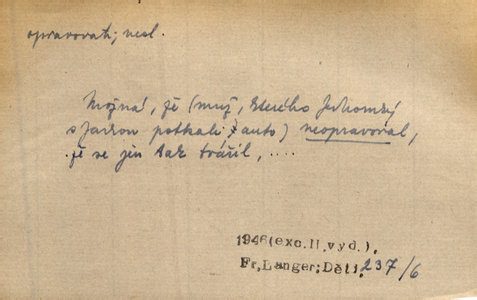 opravovati; nesl.
Možná, že (muž, kterého
s Jarkou potkali, auto) neopravoval,
že se jen tak tvářil, ....
1946 (exc. II. vyd.).
Fr. Langer: Děti, 237/6